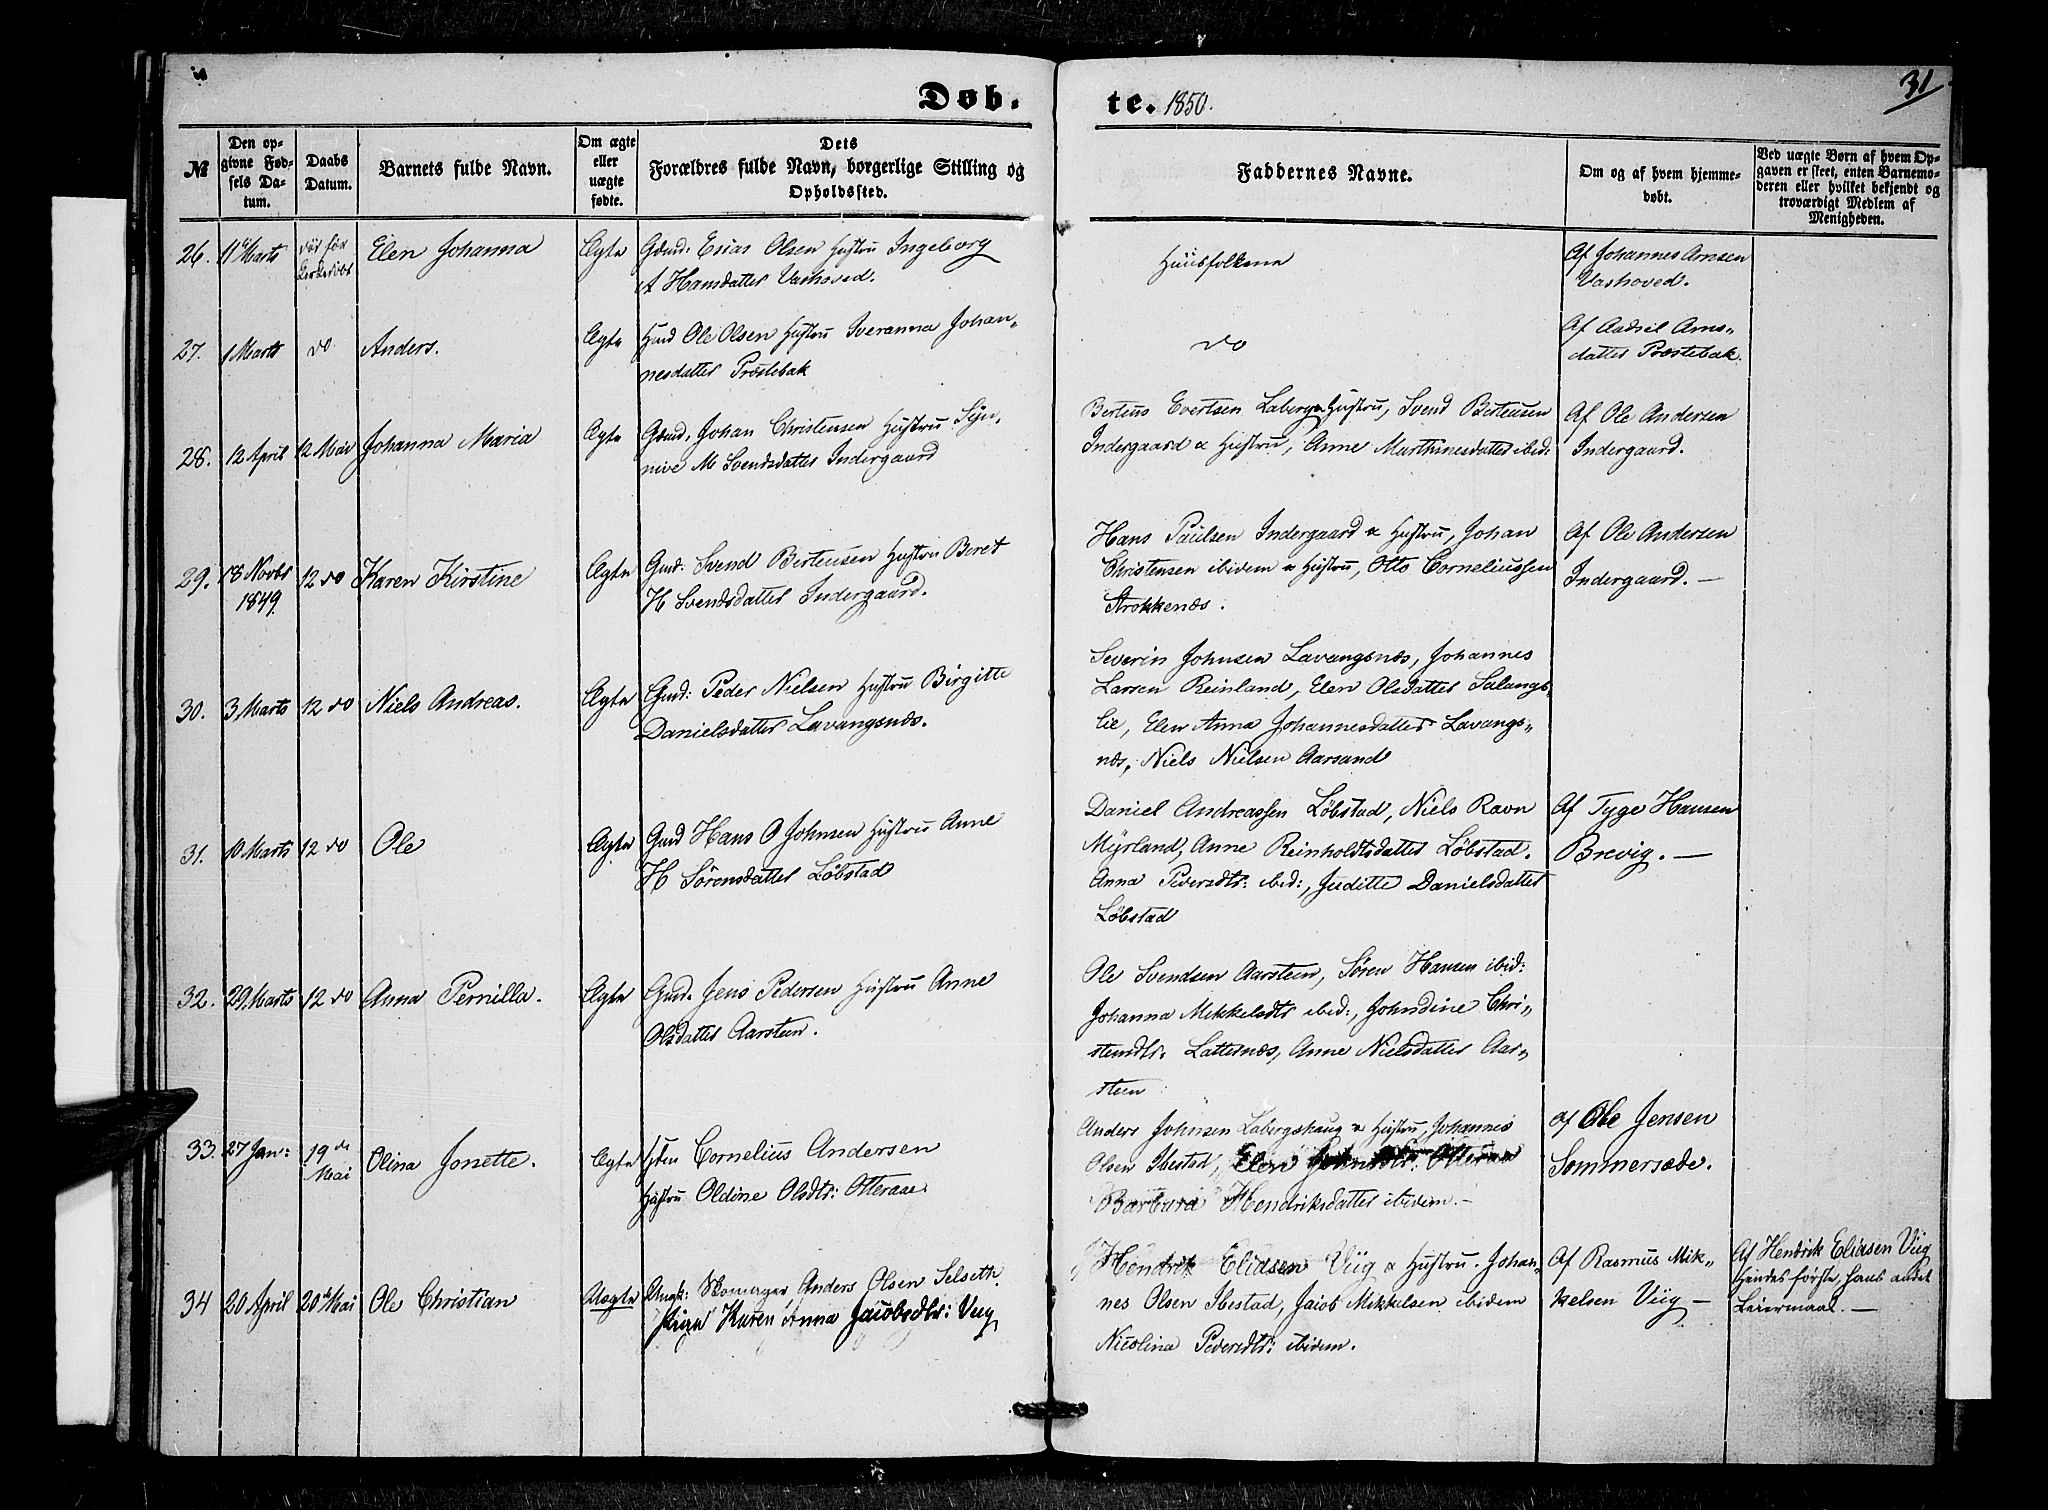 31
Døb. te. 1850.
№
Den op-
givne Fød-
sels Da-
tum.
Daabs
Datum.
Barnets fulde Navn.
Om ægte
eller
uægte
fødte.
Dets
Forældres fulde Navn, borgerlige Stilling og
Opholdssted.
Faddernes Navne.
Om og af hvem hjemme-
døbt.
Ved uægte Børn af hvem Op-
gaven er skeet, enten Barnemo-
deren eller hvilket bekjendt og
troværdigt Medlem af
Menigheden.
26. 11 Marts
død før
Elen Johanna
Ægte
Gdmd: Esias Olsen Hustru Ingeborg
A Hansdatter Vashoved.
Huusfolkene
Af Johannes Arnsen
Vashoved.
27. 1 Marts
do
Anders.
Ægte
Hmd Ole Olsen Hustru Iveranna Johan-
nesdatter Præstebak
do
Af Arns-
datter Præstebak.
28. 12 April
12 Mai
Johanna Maria
Ægte
Gdmd. Johan Christensen Hustru Syn-
nive M Svendsdatter Indergaard
Berteus Evertsen Laberg & Hustru, Svend Berteusen
Indergaard & Hustru, Anne Marthinesdatter ibid:
Af Ole Andersen
Indergaard.
29. 18 Novbr
1849.
12 do
Karen Kirstine
Ægte
Gmd: Svend Berteusen Hustru Beret
H Svendsdatter Indergaard.
Hans Paulsen Indergaard & Hustru, Johan
Christensen ibidem & Hustru, Otto Corneliussen
Strokkenæs.
Af Ole Andersen
Indergaard. —
30. 3 Marts
12 do
Niels Andreas.
Ægte
Gmd: Peder Nielsen Hustru Birgitte
Danielsdatter Lavangsnæs.
Severin Johnsen Lavangsnæs, Johannes
Larsen Reinland, Elen Olsdatter Salangs-
lie, Elen Anna Johannesdatter Lavangs-
næs, Niels Nielsen Aarsand
31. 10 Marts
12 do
Ole
Ægte
Gmd Hans O Johnsen Hustru Anne
H Sørensdatter Løbstad
Daniel Andreassen Løbstad, Niels Ravn
Myrland, Anne Reinholdtsdatter Løbstad.
Anna Pedersdtr: ibid:, Juditte Danielsdatter
Løbstad
Af Tyge Hansen
Brevig. —
32. 29 Marts
12 do
Anna Pernilla.
Ægte
Gmd. Jens Pedersen Hustru Anne
Olsdatter Aarsteen.
Ole Svendsen Aarsteen, Søren Hansen ibid:
Johanna Mikkelsdtr ibid:, Johndine Chri-
stensdtr. Latternæs, Anne Nielsdatter Aar-
steen
33. 27 Jan:
19de
Mai
Olina Jonette.
Ægte
Cornelius Andersen
Hustru Oldine Olsdtr: Otteraae
Anders Johnsen Labergshaug & Hustru, Johannes
Olsen Ibestad, Elen
Barbara Hendriksdatter ibidem. —
Af Ole Jensen
Sommersæde.
34 20 April
20de Mai
Ole Christian
Uægte
Ungk: Skomager Anders Olsen Selseth.
Pige Karen Anna Jacobsdtr: Viig
Hendrik Eliasen Viig & Hustru. Johan-
nes Olsen Ibestad, Jacob Mikkelsen ibidem
Nicolina Pedersdtr: ibidem.
Af Rasmus Mik-
kelsen Viig —
Af Hendrik Eliasen Viig
Hendes første, hans andet
Leiermaal. —